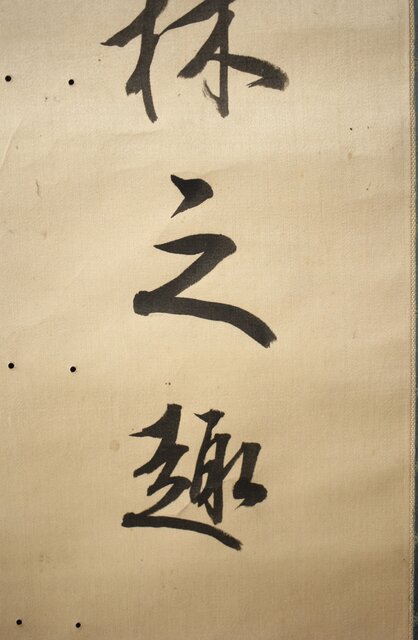 林之趣